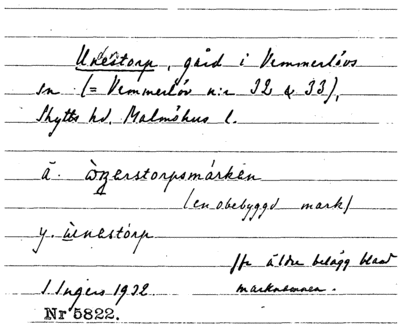 Unestorp, gård i Vemmerlövs
sn (= Vemmerlöv n:r 32 & 33),
Skytts hd. Malmöhus l.
ä. ùngerstorpsmárken
(en obebyggd mark)
y. ùnestórp
Jfr äldre belägg bland
marknamnen.
I. Ingers 1932.
Nr 5822.